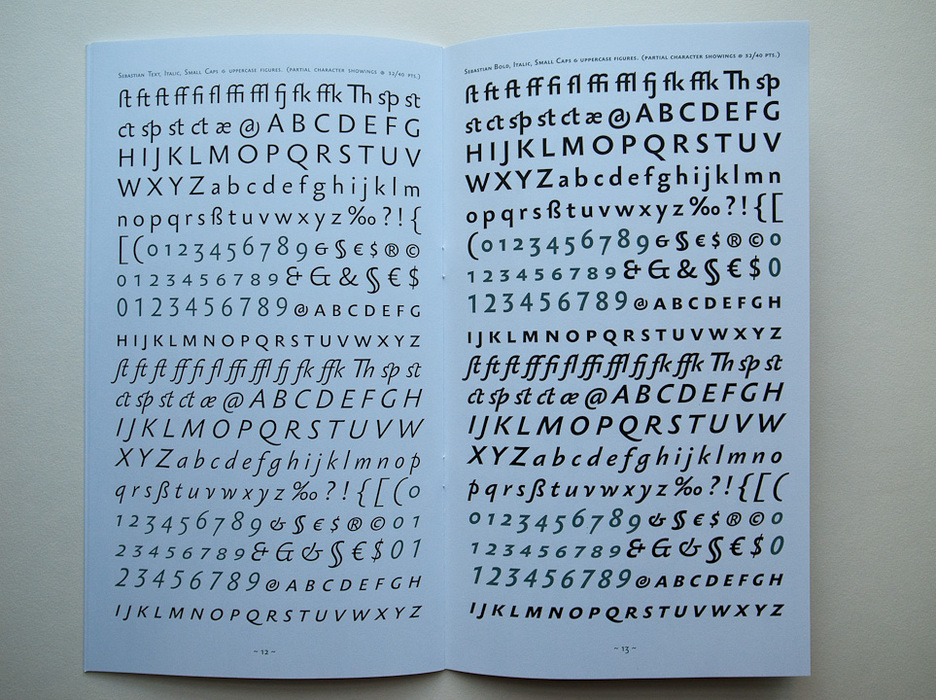 Sebastian Text, Italic, Small Caps & uppercase figures. (partial character showings @ 32/40 pts.)
ſt ft ft ff fi fl ffi ffl fj fk ffk Th sp st
ct sp st ct æ @ A B C D E F G
H I J K L M O P Q R S T U V
W X Y Z a b c d e f g h i j k l m
n o p q r s ß t u v w x y z ‰ ? ! {
[ ( 0 1 2 3 4 5 6 7 8 9 & § € $ ® ©
0 1 2 3 4 5 6 7 8 9 & & & § € $
0 1 2 3 4 5 6 7 8 9 @ A B C D E F G
H I J K L M N O P Q R S T U V W X Y Z
ſt ft ft ff fi fl ffi ffl fj fk ffk Th sp st
ct sp st ct æ @ A B C D E F G H
I J K L M O P Q R S T U V W
X Y Z a b c d e f g h i j k l m n o p
q r s ß t u v w x y z ‰ ? ! { [ ( 0
1 2 3 4 5 6 7 8 9 & § € $ ® © 0 1
2 3 4 5 6 7 8 9 & & & § € $ 0 1
2 3 4 5 6 7 8 9 @ A B C D E F G H
I J K L M N O P Q R S T U V W X Y Z
~ 12 ~
Sebastian Bold, Italic, Small Caps & uppercase figures. (partial character showings @ 32/40 pts.)
ſt ft ft ff fi fl ffi ffl fj fk ffk Th sp
st ct sp st ct æ @ A B C D E F G
H I J K L M O P Q R S T U V
W X Y Z a b c d e f g h i j k l m n
o p q r s ß t u v w x y z ‰ ? ! { [
( 0 1 2 3 4 5 6 7 8 9 & § € $ ® © 0
1 2 3 4 5 6 7 8 9 & & & § € $ 0
1 2 3 4 5 6 7 8 9 @ A B C D E F G H
I J K L M N O P Q R S T U V W X Y Z
ſt ft ft ff fi fl ffi ffl fj fk ffk Th sp st
ct sp st ct æ @ A B C D E F G H
I J K L M O P Q R S T U V W
X Y Z a b c d e f g h i j k l m n o
p q r s ß t u v w x y z ‰ ? ! { [ (
0 1 2 3 4 5 6 7 8 9 & § € $ ® © 0
1 2 3 4 5 6 7 8 9 & & & § € $ 0
1 2 3 4 5 6 7 8 9 @ A B C D E F G H
I J K L M N O P Q R S T U V W X Y Z
~ 13 ~